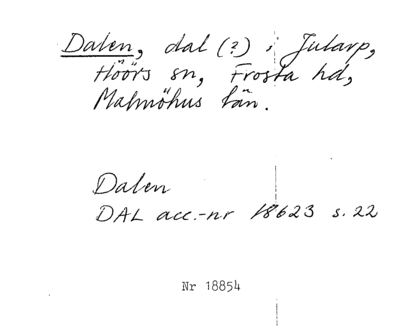 Dalen, dal (?) i Jularp,
Höörs sn, Frosta hd,
Malmöhus län.
Dalen
DAL acc.-nr 18623 s. 22
Nr 18854